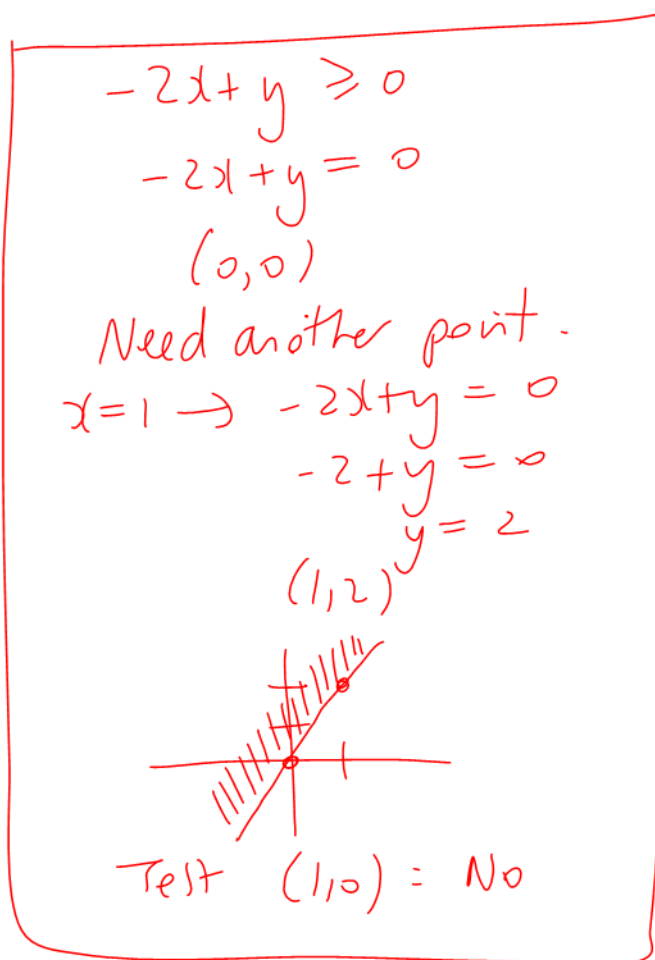 -2x+y ≥ 0
-2x+y = 0
(0,0)
Need another point.
x=1 → -2x+y = 0
-2+y = 0
y = 2
(1,2)
Test (1,0) : No